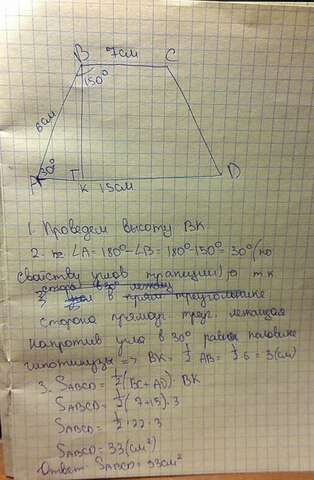 B 7см C
150°
6см
30°
A К 15см D
1. Проведем высоту BK
2. ∠A = 180° - ∠B = 180° - 150° = 30° (по
свойству углов трапеции), т к
в треугольнике
сторона прямоуг. треуг. лежащая
напротив угла в 30° равна половине
гипотенузы => BK = ½ AB = ½ · 6 = 3 (см)
3. SABCD = ½ (BC + AD) · BK
SABCD = ½ (7+15) · 3
SABCD = ½ · 22 · 3
SABCD = 33 (см²)
Ответ SABCD = 33см²